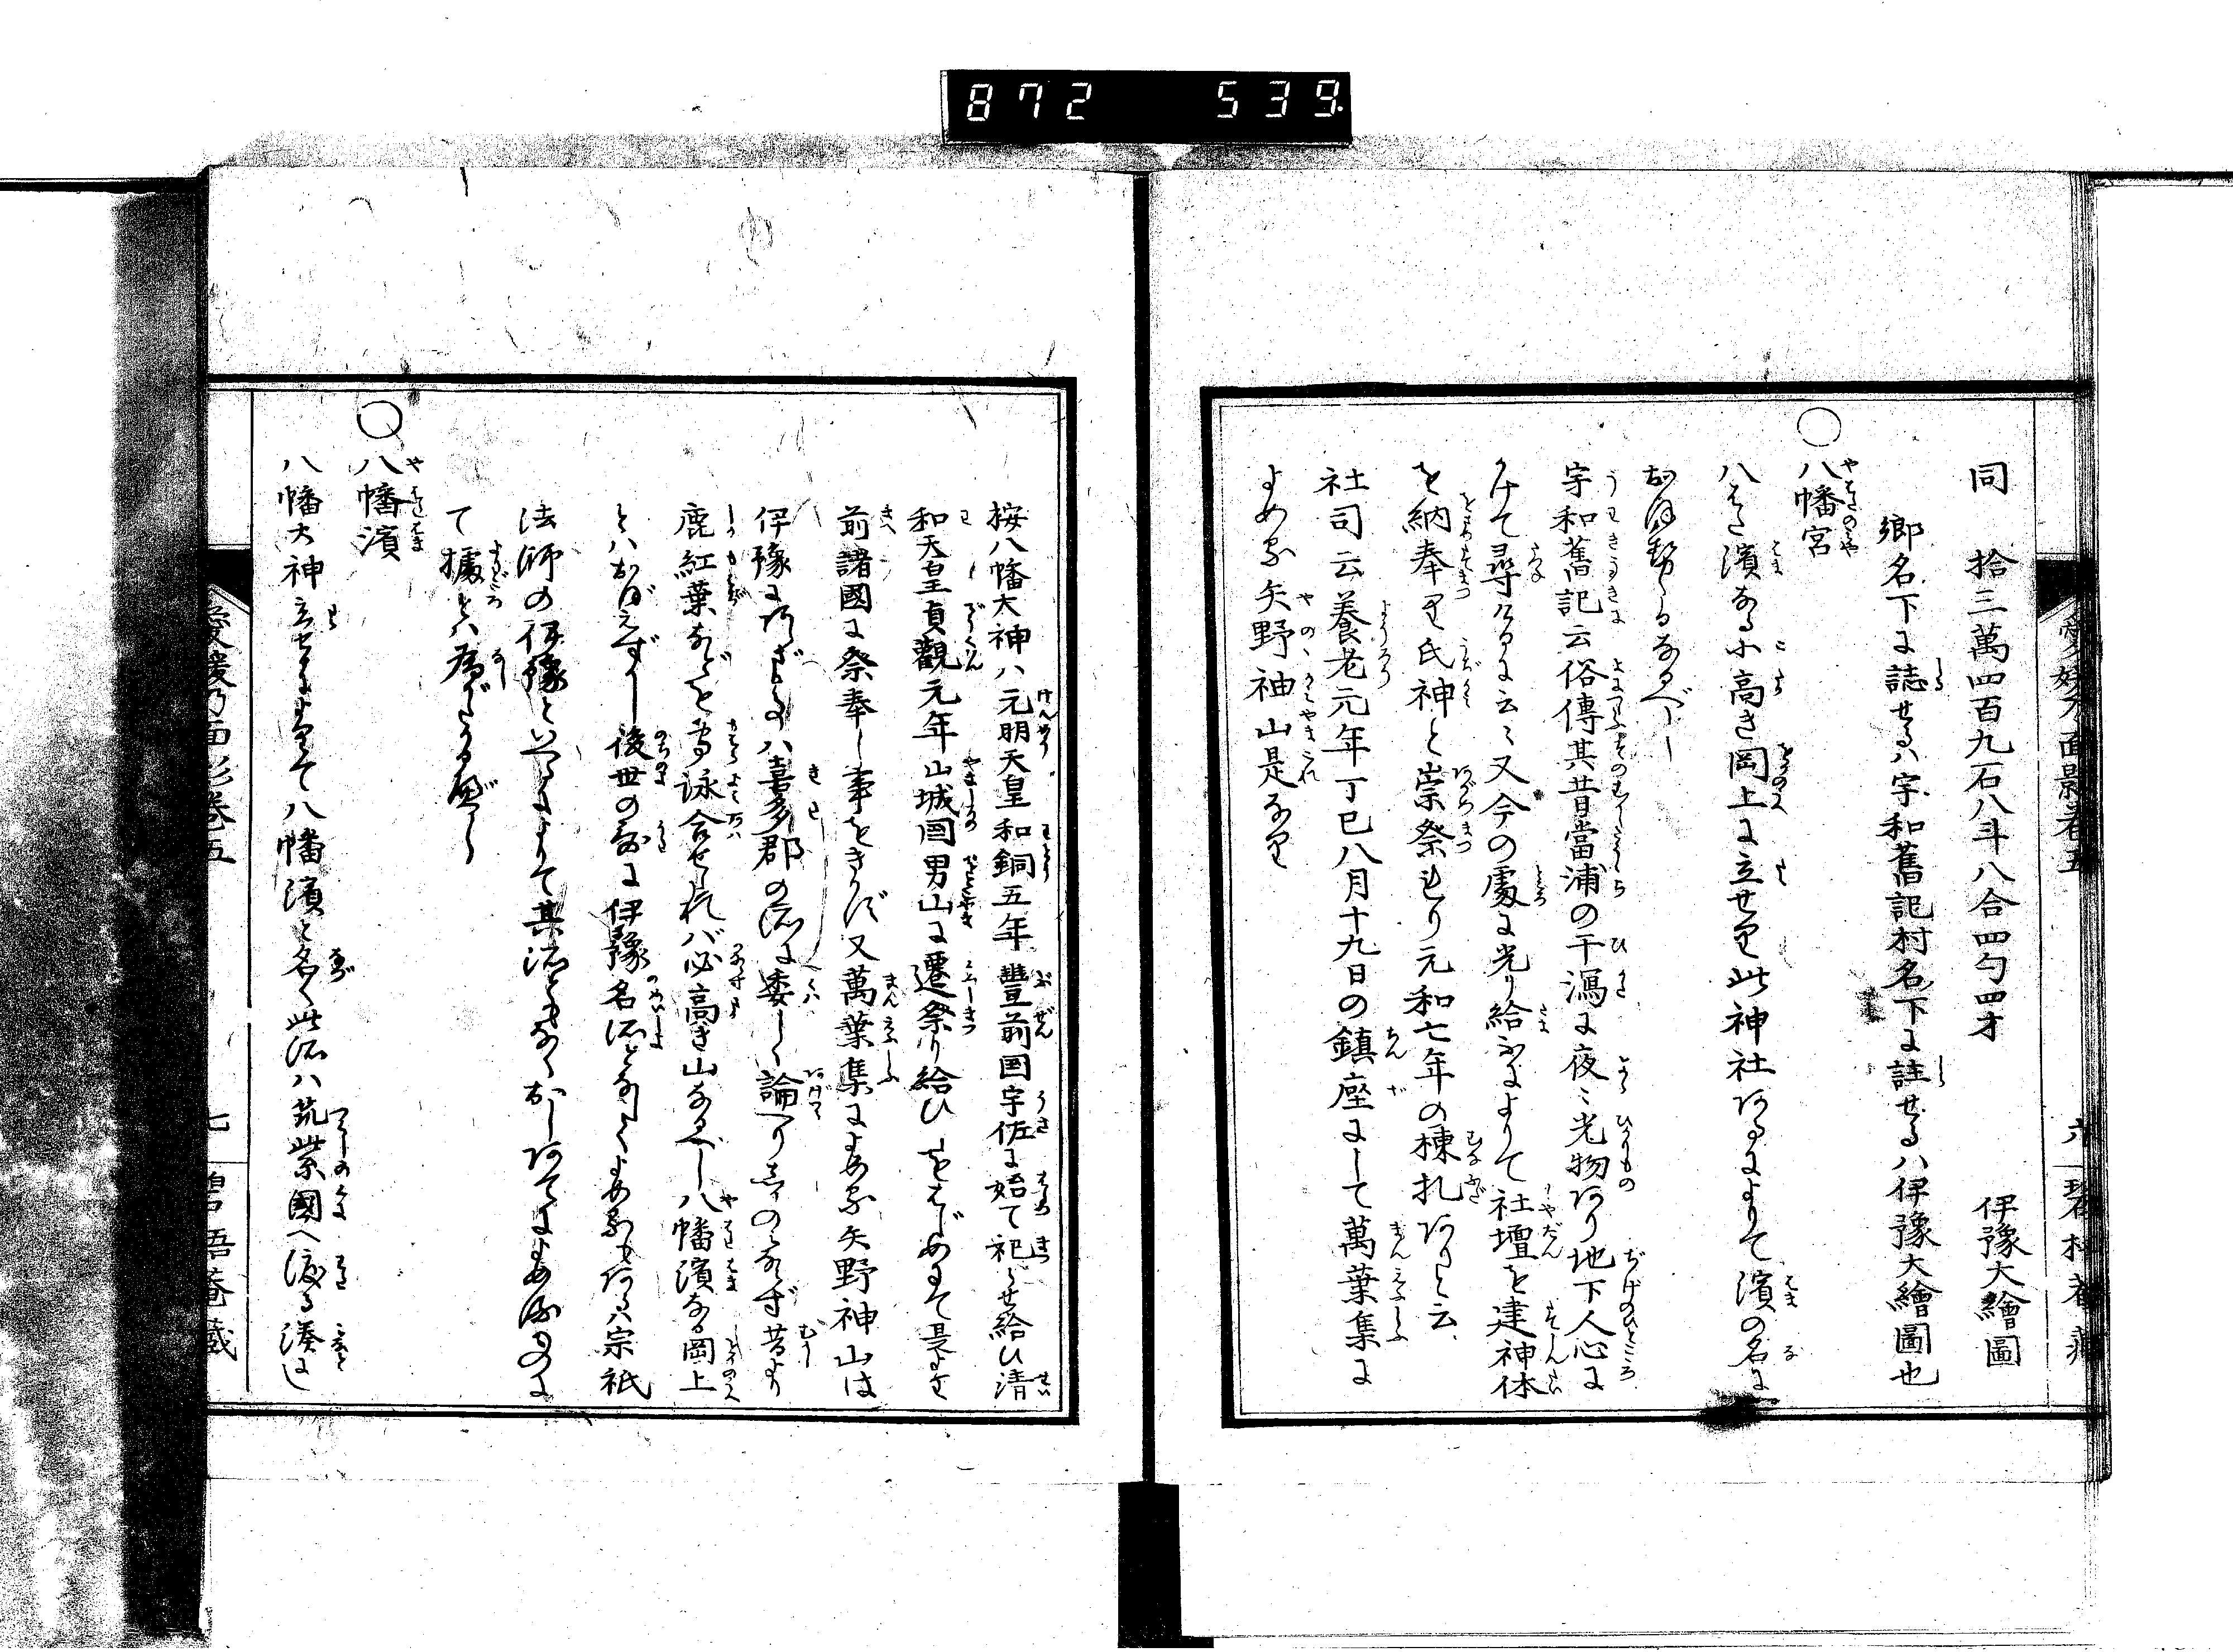 872 539
愛媛乃面影卷五
六
同 拾三萬四百九石八斗八合四勺四才 伊豫大繪圖
郷名下に誌せるハ宇和舊記村名下に註せるハ伊豫大繪圖也
○八幡宮
八はた濱なる小高き岡上に立せり此神社あるによりて濱の名に
おほせるなるべし
宇和舊記云俗傳其昔當浦の干潟に夜〻光物あり地下人心に
かけて尋けるに云〻又今の處に光り給ふによりて社壇を建神体
を納奉り氏神と崇祭れり元和七年の棟札ありと云
社司云養老元年丁巳八月十九日の鎮座にして萬葉集に
よめる矢野神山是なり
按八幡大神ハ元明天皇和銅五年豐前国宇佐に始て祀らせ給ひ清
和天皇貞觀元年山城国男山に遷祭り給ひ
前諸國に祭奉し事をきかず又萬葉集によめる矢野神山は
伊豫にあらざる事ハ喜多郡の所に委しく論へり
鹿紅葉などを
詠合せたれバ必高き山なるべし八幡濱なる岡上
とハおぼえずかし後世の
に伊豫名所となしてよめるもあるハ宗祇
法師の伊豫といへるによりて其所ともなくおしあてによめるものに
て據とハ為がたかるべし
○八幡濱
八幡大神立せるによりて八幡濱と名く此所ハ筑紫國へ渡る湊にし
愛媛乃面影卷五
七